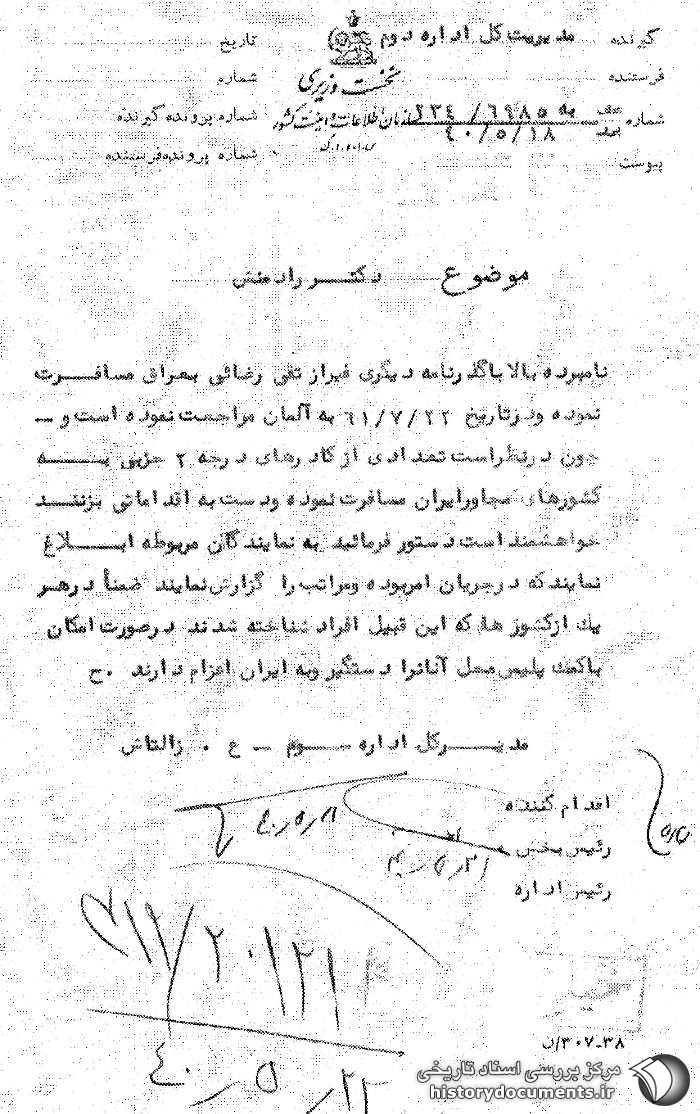 گیرنده مدیریت کل اداره دوم
تاریخ
فرستنده
شماره
نخست وزیری
سازمان اطلاعات و امنیت کشور
س.ا.و.ا.ک
شماره
به ۶۹۸۵ / ۲۳۴
۴۰/۵/۱۸
شماره پرونده گیرنده
شماره پرونده فرستنده
پیوست
موضوع دکتر رادمنش
نامبرده بالا باگذرنامه دیگری غیراز تقی رضائی بعراق مسافرت
نموده ودرتاریخ ۶۱/۷/۲۲ به آلمان مراجعت نموده است و ــ
چون درنظراست تعدادی از کادرهای درجه ۲ حزبی بــه
کشورهای مجاورایران مسافرت نموده ودست به اقداماتی بزننــد
خواهشمند است دستور فرمائید به نمایندگان مربوطه ابــلاغ
نمایند که درجریان امربوده ومراتب را گزارش نمایند ضمناً درهر
یک ازکشورها که این قبیل افراد شناخته شدند درصورت امکان
باکمک پلیس محل آنانرا دستگیر وبه ایران اعزام دارند .ح
مدیــرکل اداره ســوم ــ ع . زالتاش
اقدام کننده
۴۰/۵/۱۸
رئیس بخش
رئیس اداره
۴۰/۵/۲۲
۳۰۷-۳۸/ن
مرکز بررسی اسناد تاریخی
historydocuments.ir